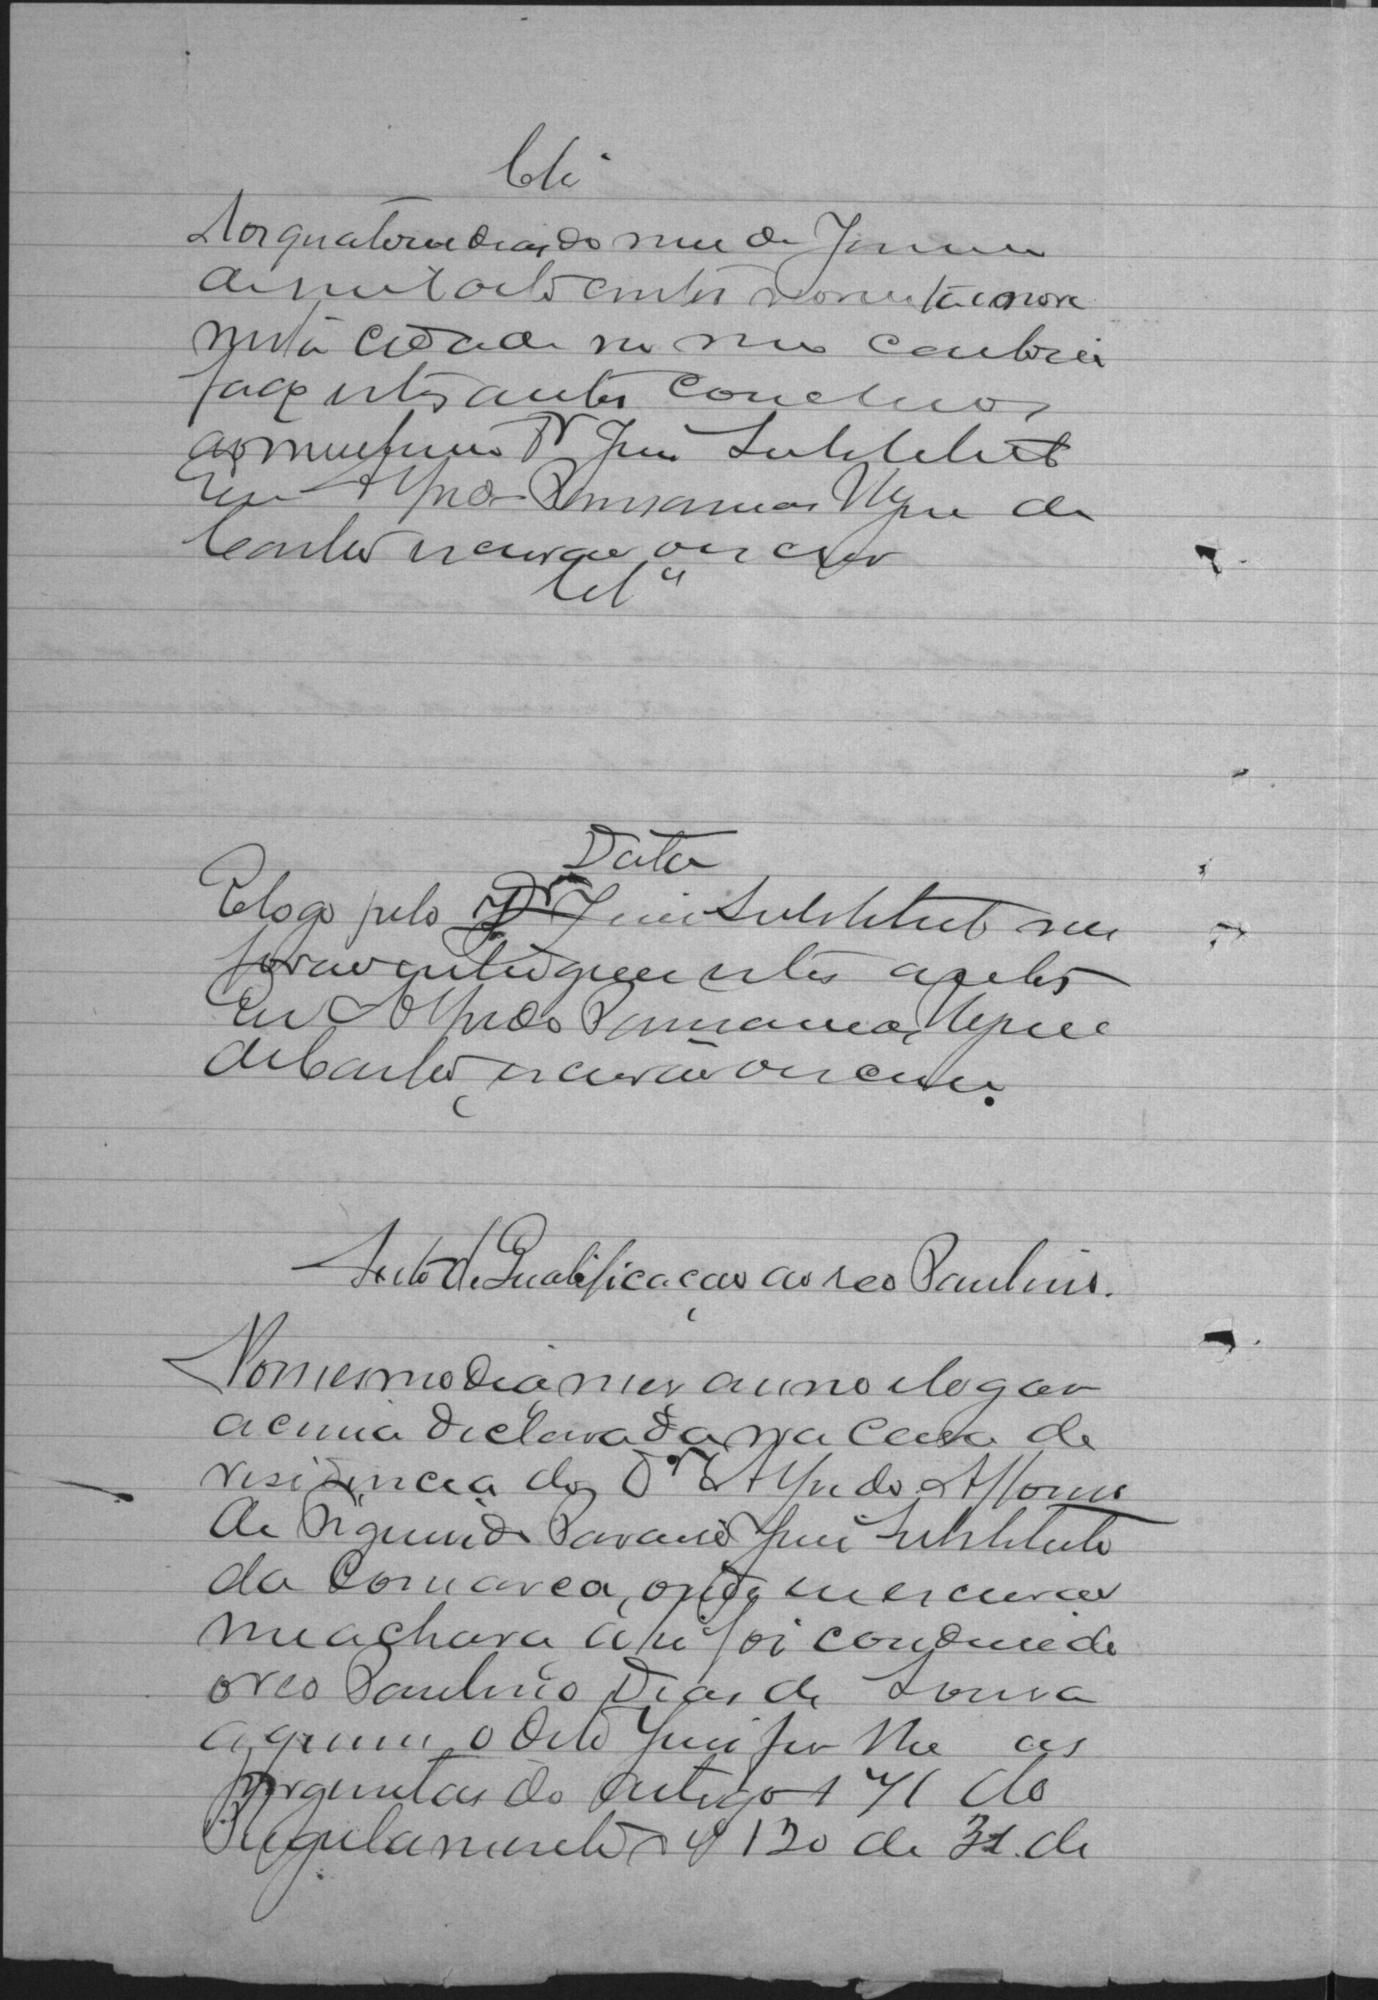 Cls
Aos quatorze dias do mes de Junho
de mil oito centos noventa e nove
nesta cidade no meu cartorio
faço estes autos conclusos
ao meritissimo Dr Juiz Substituto
Eu Alfredo de
Castro escrivão que escrevi
Cls
Data
E logo pelo Dr Juiz Substituto me
foram entregues estes autos
Eu Alfredo
de Castro, escrivão que escrevi.
Auto de Qualificação ao reo Paulino.
No mesmo dia, mes anno e logar
acima declarado, na casa de
residencia do Dr Alfredo Affonso
de Juiz Substituto
da Comarca, onde eu escrivão
me achava, ahi foi conduzido
o reo Paulino Dias de Souza
a quem o dito Juiz fez lhe as
perguntas do artigo 171 do
Regulamento nº 120 de 31 de